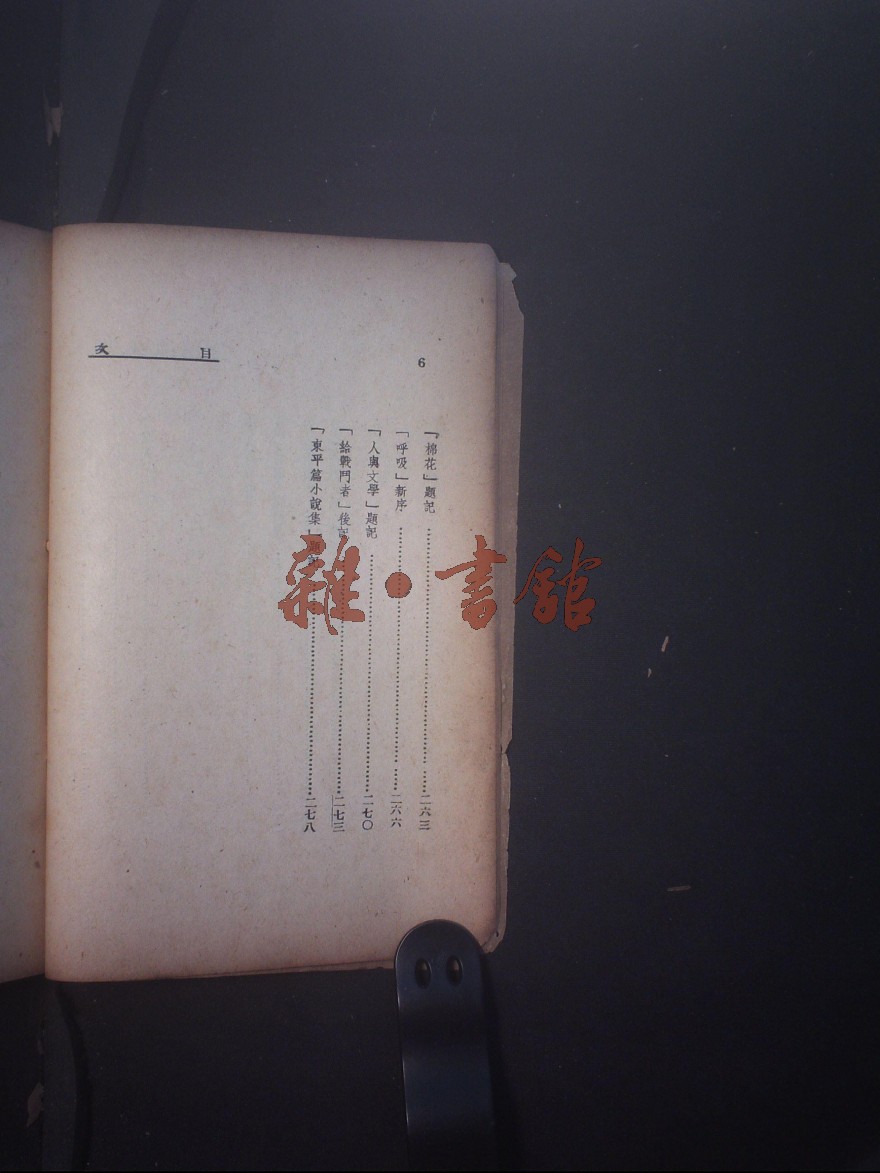 目 文
6
「棉花」題記……二六三
「呼吸」新序……二六六
「人與文學」題記……二七〇
「給戰鬥者」後記……二七三
「東平篇小說集」題記……二七八
雜·書館